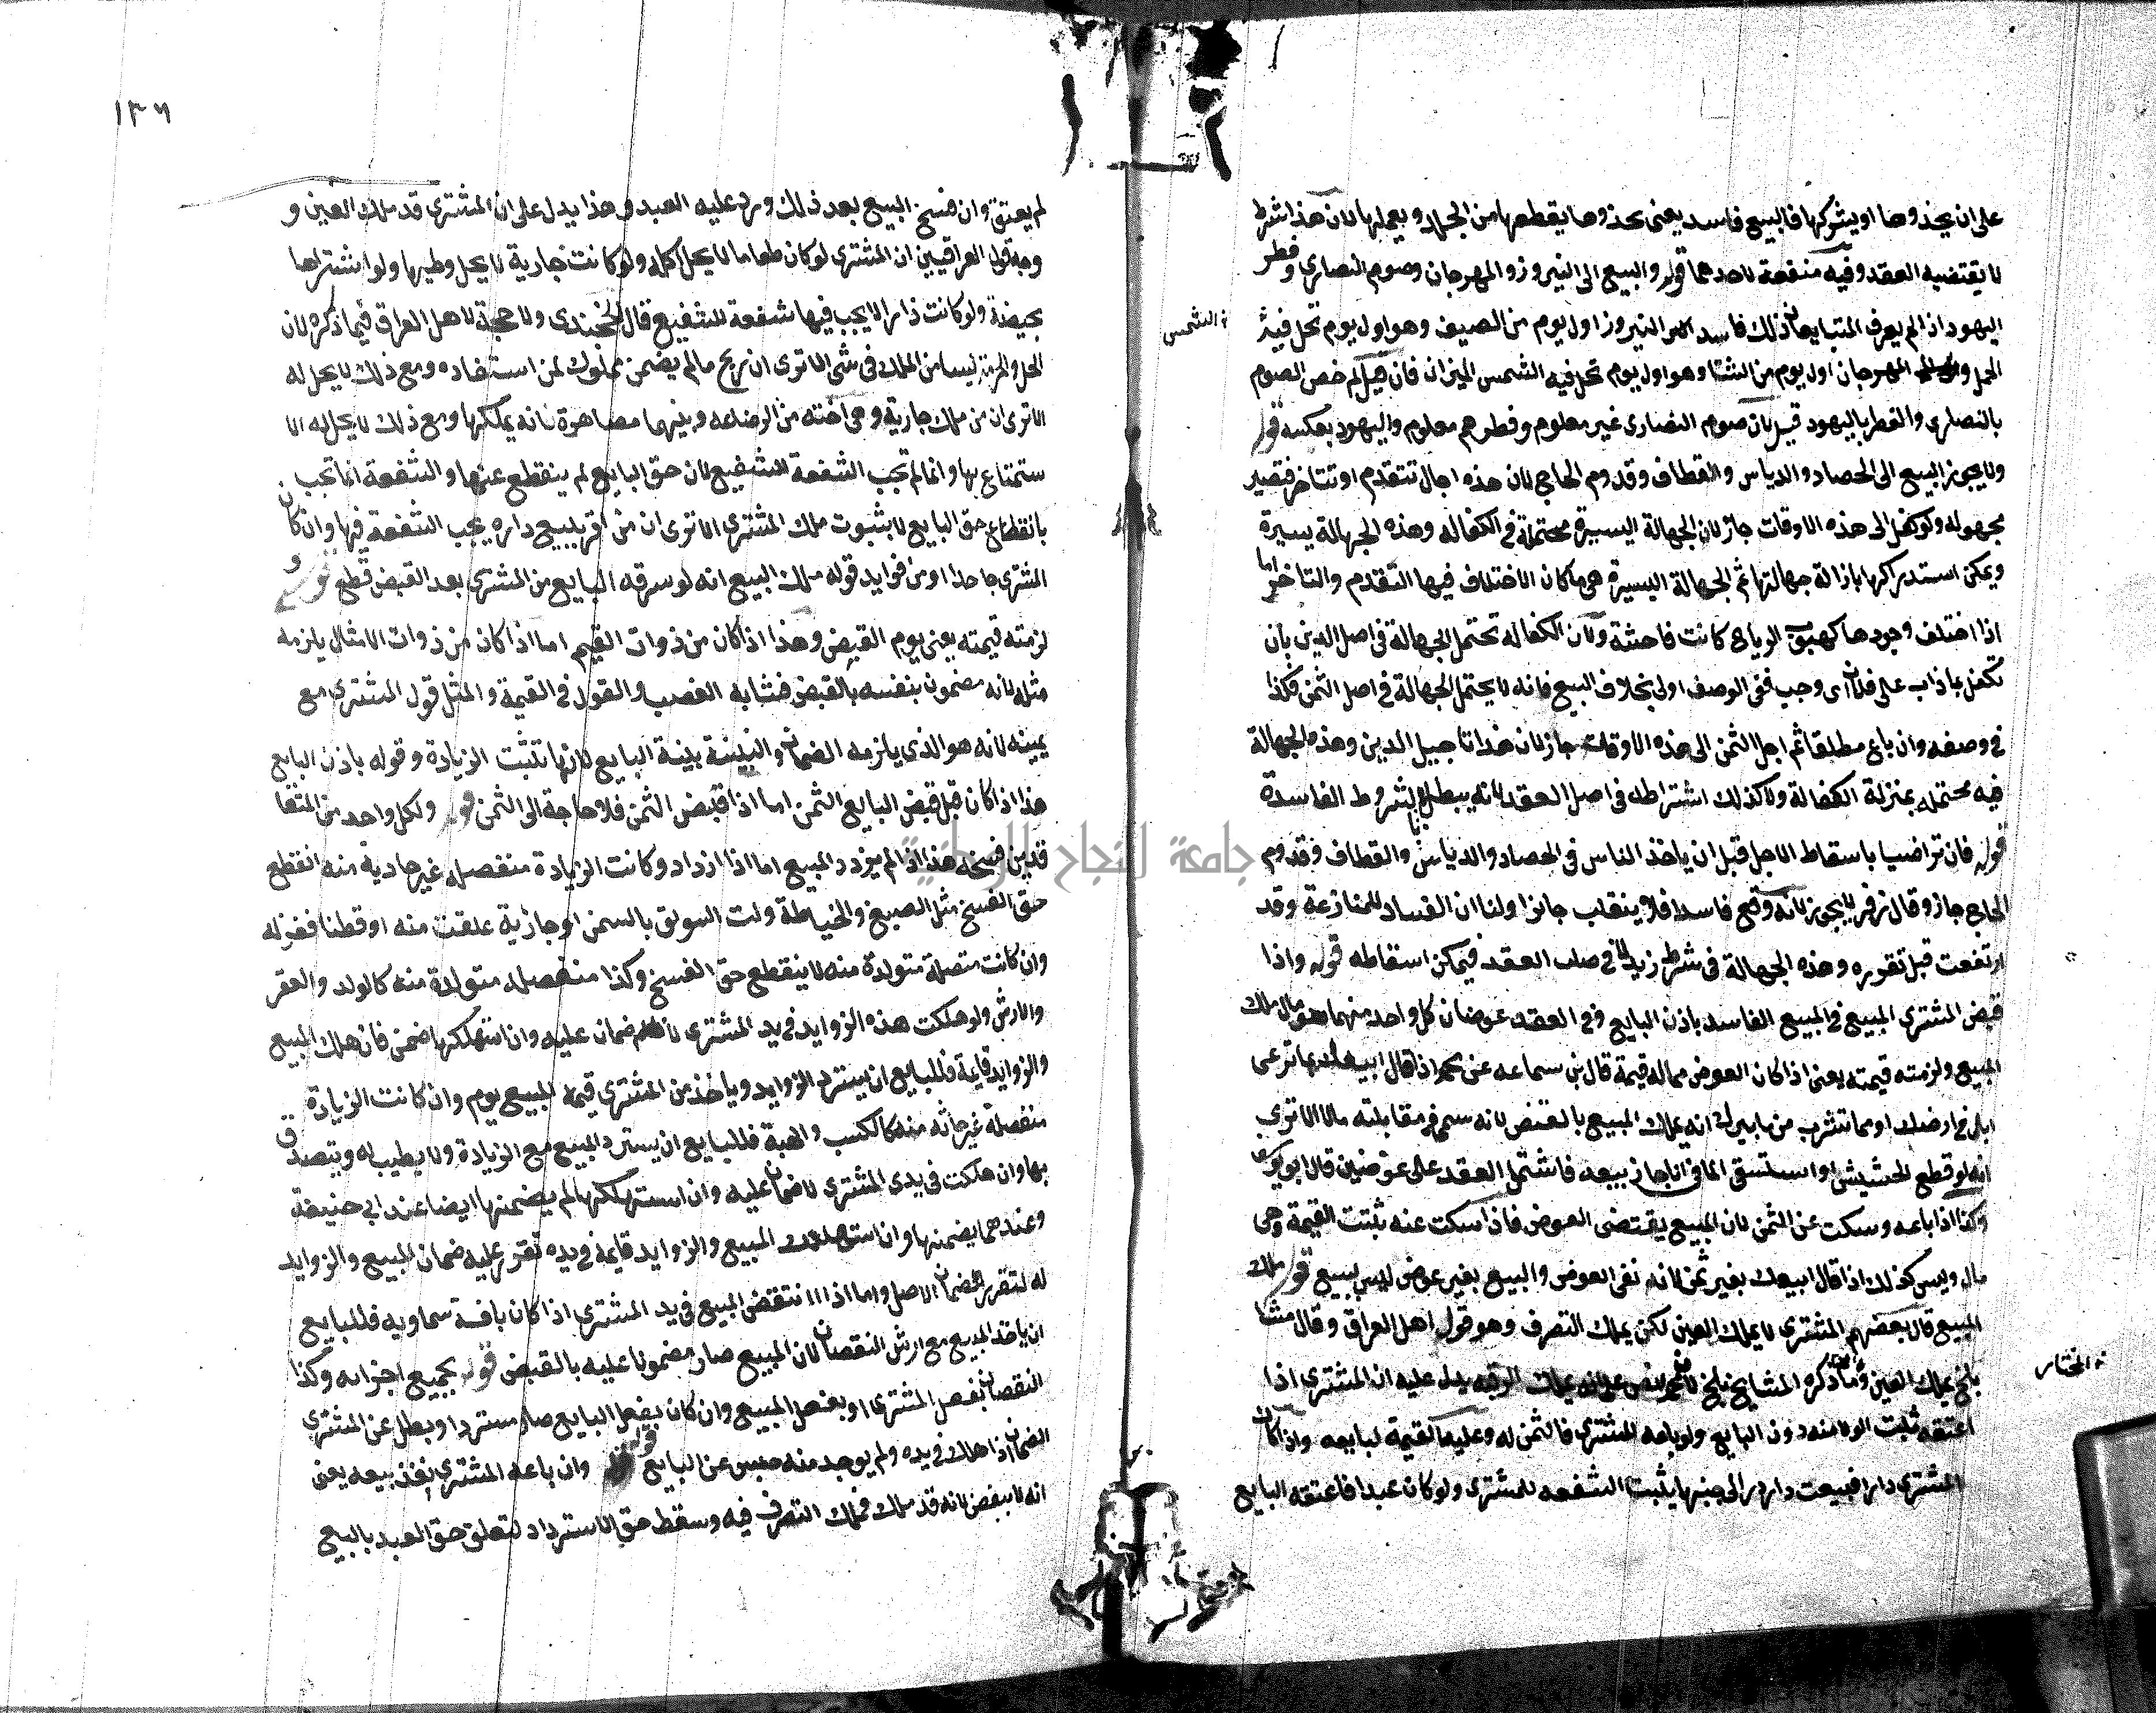 على ان يحذوها او يشركها فالبيع فاسد يعنى يحذوها يقطعها من الجلد ويعملها لان هذا شرط
لا يقتضيه العقد وفيه منفعة لاحدهما قوله والبيع الى النيروز والمهرجان وصوم النصارى وفطر
اليهود اذا لم يعرف المتبايعان ذلك فاسد النيروز اول يوم من الصيف وهو اول يوم تحل فيه
الشمس
الحمل والمهرجان اول يوم من الشتا وهو اول يوم تحل فيه الشمس الميزان فان قيل لم خص الصوم
بالنصارى والفطر باليهود قيل لان صوم النصارى غير معلوم وفطرهم معلوم واليهود بعكسه قوله
ولا يجوز البيع الى الحصاد والدياس والقطاف وقدوم الحاج لان هذه اجال تتقدم او تتاخر فتصير
مجهوله ولو كفل الى هذه الاوقات جاز لان الجهالة اليسيرة محتملة في الكفاله وهذه الجهالة يسيرة
ويمكن استدراكها بازالة جهالتها ثم الجهالة اليسيرة هي ما كان الاختلاف فيها التقدم والتاخر اما
اذا اختلف وجودها كهبوب الرياح كانت فاحشة ولان الكفاله تحتمل الجهالة في اصل الدين بان
تكفل بما ذاب على فلان اى وجب ففى الوصف اولى بخلاف البيع فانه لا يحتمل الجهالة في اصل الثمن فكذا
في وصفه وان باع مطلقا ثم اجل الثمن الى هذه الاوقات جاز لان هذا تاجيل الدين وهذه الجهالة
فيه محتمله بمنزلة الكفالة ولا كذلك اشتراطه في اصل العقد لانه يبطل بالشروط الفاسدة
قوله فان تراضيا باسقاط الاجل قبل ان ياخذ الناس في الحصاد والدياس والقطاف وقدوم
الحاج جاز وقال زفر لا يجوز لانه وقع فاسدا فلا ينقلب جائزا ولنا ان الفساد للمنازعة وقد
ارتفعت قبل تقرره وهذه الجهالة في شرط زايد لا في صلب العقد فيمكن اسقاطه قوله واذا
قبض المشترى المبيع في البيع الفاسد باذن البايع وفي العقد عوضان كل واحد منهما هو مال ملك
المبيع ولزمته قيمته يعنى اذا كان العوض مما له قيمة قال بن سماعه عن محمد اذا قال ابيعك بما ترعى
ابلى في ارضك او بما تشرب من ما بيرك انه يملك المبيع بالقبض لانه سمى في مقابلته مالا الا ترى
انه لو قطع الحشيش او استسقى الما في انا جاز بيعه فاشتمل العقد على عوضين قال ابو يوسف
وكذا اذا باعه وسكت عن الثمن لان المبيع يقتضى العوض فاذا سكت عنه ثبتت القيمة وهى
مال وليس كذلك اذا قال ابيعك بغير ثمن لانه نفى العوض والبيع بغير عوض ليس ببيع قوله ملك
المبيع قال بعضهم المشترى لا يملك العين لكن يملك التصرف وهو قول اهل العراق وقال مشا
يخ بلخ يملك العين وما ذكره المشايخ بلخ لان محمد نص على انه يملك الرقبه يدل عليه ان المشترى اذا
المختار
اعتقه ثبت الولا منه دون البايع ولو باعه المشترى فالثمن له وعليه القيمة لبايعه واذا كان
المشترى دارا فبيعت دار الى جنبها يثبت الشفعه للمشترى ولو كان عبدا فاعتقه البايع
١٣٦
لم يعتق وان فسخ البيع بعد ذلك ورد عليه العبد وهذا يدل على ان المشترى قد ملك العين و
وجه قول العراقيين ان المشترى لو كان طعاما لا يحل اكله ولو كانت جارية لا يحل وطيها ولو اشتراها
بحيضة ولو كانت دارا لا يجب فيها شفعة للشفيع قال الخجندى ولا حجة لاهل العراق فيما ذكره لان
الحل والحرمة ليسا من الملك في شى الا ترى ان ربح ما لم يضمن مملوك لمن استفاده ومع ذلك لا يحل له
الا ترى ان من ملك جارية وهى اخته من الرضاعه وبينهما مصاهرة فانه يملكها ومع ذلك لا يحل له الا
ستمتاع بها وانما لم تجب الشفعة للشفيع لان حق البايع لم ينقطع عنها والشفعة انما تجب
بانقطاع حق البايع لا بثبوت ملك المشترى الا ترى ان من اقر ببيع داره يجب الشفعة فيها وان كان
المشترى جاحدا ومن فوايد قوله ملك البيع انه لو سرقه البايع من المشترى بعد القبض قطع قوله و
لزمته قيمته يعنى يوم القبض وهذا اذا كان من ذوات القيم اما اذا كان من ذوات الامثال يلزمه
مثله لانه مضمون بنفسه بالقبض فشابه الغصب والقول في القيمة والمثل قول المشترى مع
يمينه لانه هو الذى يلزمه الضمان والبينة بينة البايع لانها تثبت الزيادة وقوله باذن البايع
هذا اذا كان قبل قبض البايع الثمن اما اذا قبض الثمن فلا حاجة الى الثمن قوله ولكل واحد من المتعا
قدين فسخه هذا اذا لم يزدد المبيع اما اذا ازداد وكانت الزيادة منفصله غير حادية منه انقطع
حق الفسخ مثل الصبغ والخياطة ولت السويق بالسمن او جارية علقت منه او قطنا فغزله
وان كانت متصلة متولدة منه لا ينقطع حق الفسخ وكذا منفصله متولدة منه كالولد والعقر
والارش ولو هلكت هذه الزوايد في يد المشترى لا ضمان عليه وان استهلكها ضمن فان هلك المبيع
والزوايد قايمة فللبايع ان يسترد الزوايد وياخذ من المشترى قيمة المبيع يوم وان كانت الزيادة
منفصلة غير حادثه منه كالكسب والهبة فللبايع ان يسترد المبيع مع الزيادة ولا يطيب له ويتصدق
بها وان هلكت في يدى المشترى لا ضمان عليه وان استهلكها لم يضمنها ايضا عند ابى حنيفة
وعندهما يضمنها وان استهلك المبيع والزوايد قايمة في يده تقرر عليه ضمان المبيع والزوايد
له لتقرير الضمان الاصل واما اذا انتقض المبيع في يد المشترى اذا كان بافة سماويه فللبايع
ان ياخذ المبيع مع ارش النقصان لان المبيع صار مضمونا عليه بالقبض قوله بجميع اجزائه وكذا
النقصان بفعل المشترى او بفعل المبيع وان كان بفعل البايع صار مستردا وبطل عن المشترى
الضمان اذا هلك في يده ولم يوجد منه حبس عن البايع قوله وان باعه المشترى نفذ بيعه يعنى
انه لا ينقض لانه قد ملك فملك التصرف فيه وسقط حق الاسترداد لتعلق حق العبد بالبيع
جامعة النجاح الوطنية